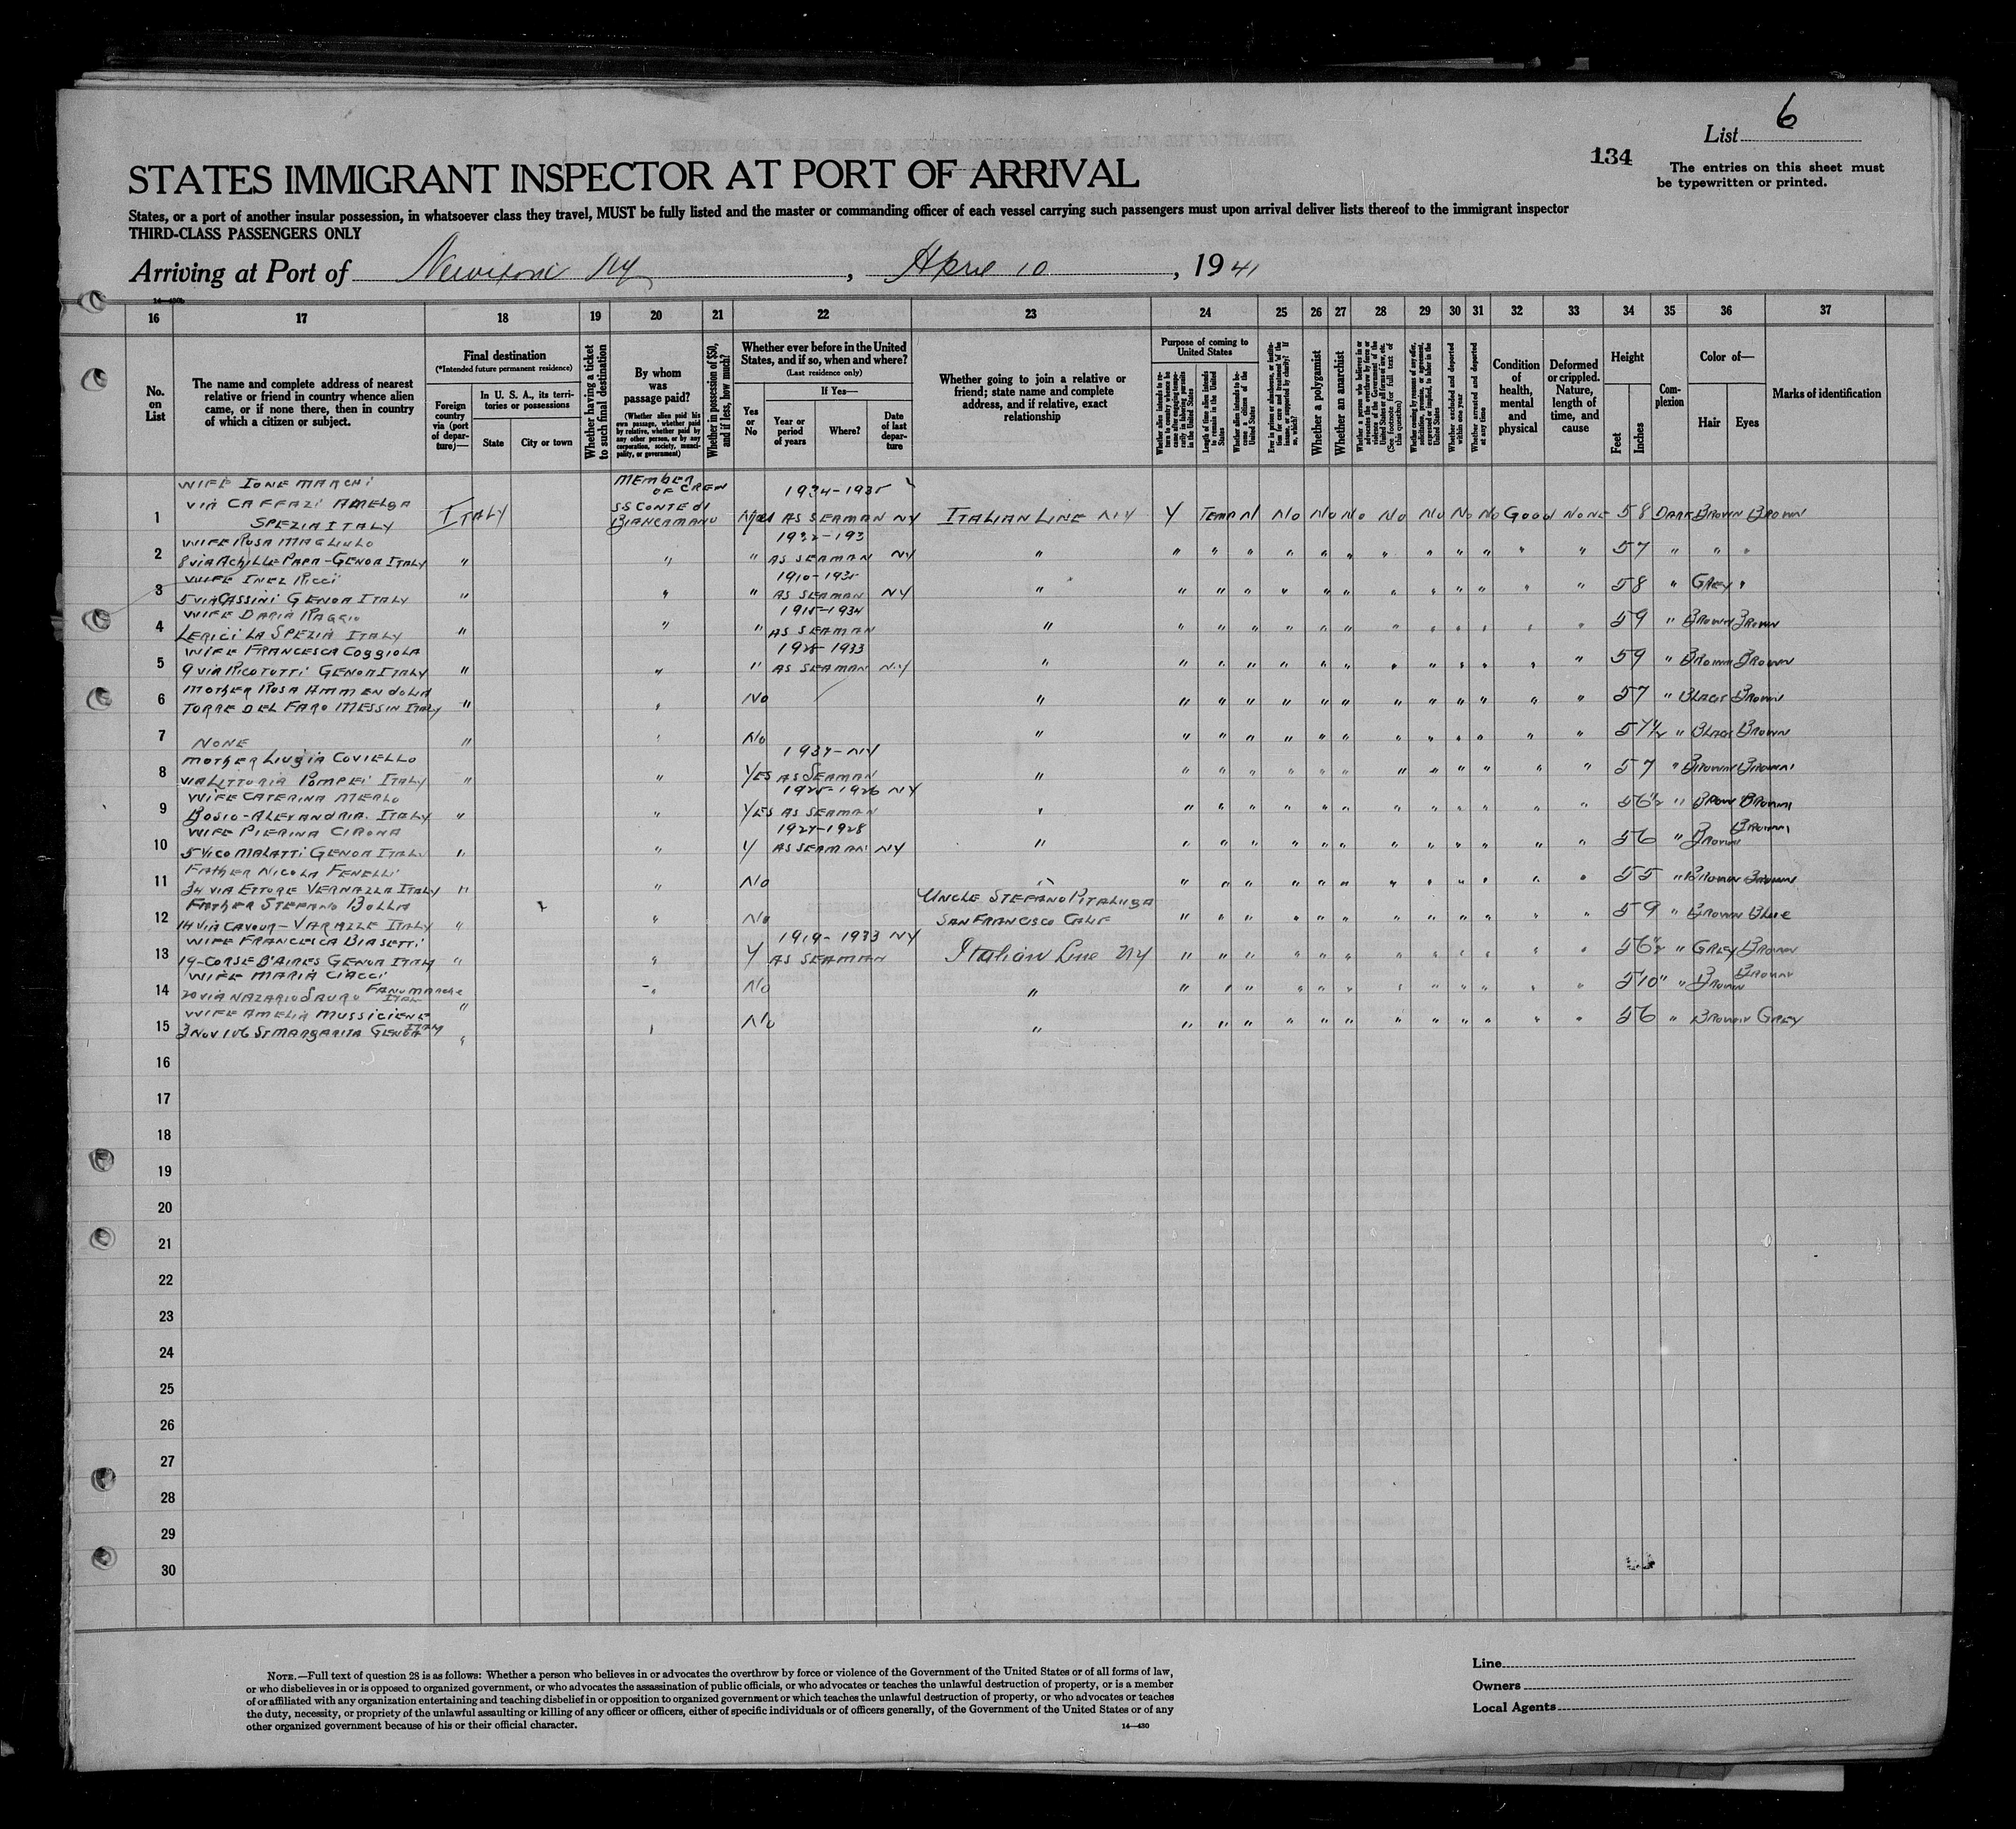 List 6
134
The entries on this sheet must
be typewritten or printed.
STATES IMMIGRANT INSPECTOR AT PORT OF ARRIVAL
States, or a port of another insular possession, in whatsoever class they travel, MUST be fully listed and the master or commanding officer of each vessel carrying such passengers must upon arrival deliver lists thereof to the immigrant inspector
THIRD-CLASS PASSENGERS ONLY
Arriving at Port of Newyork NY, April 10, 1941
16 17 18 19 20 21 22 23 24 25 26 27 28 29 30 31 32 33 34 35 36 37
No. on List
The name and complete address of nearest
relative or friend in country whence alien
came, or if none there, then in country
of which a citizen or subject.
Final destination
(*Intended future permanent residence)
Foreign country via (port of departure)—
In U. S. A., its territories or possessions
State
City or town
Whether having a ticket to such final destination
By whom was passage paid?
(Whether alien paid his own passage, whether paid by relative, whether paid by any other person, or by any corporation, society, municipality, or government)
Whether in possession of $50, and if less, how much?
Whether ever before in the United States, and if so, when and where?
(Last residence only)
Yes or No
If Yes—
Year or period of years
Where?
Date of last departure
Whether going to join a relative or
friend; state name and complete
address, and if relative, exact
relationship
Purpose of coming to United States
Whether alien intends to return to country whence he came after engaging temporarily in laboring pursuits in the United States
Length of time alien intends to remain in the United States
Whether alien intends to become a citizen of the United States
Ever in prison or almshouse, or institution for care and treatment of the insane, or supported by charity? If so, which?
Whether a polygamist
Whether an anarchist
Whether a person who believes in or advocates the overthrow by force or violence of the Government of the United States or all forms of law, etc. (See footnote for full text of this question)
Whether coming by reason of any offer, solicitation, promise, or agreement, expressed or implied, to labor in the United States
Whether excluded and deported within one year
Whether arrested and deported at any time
Condition of health, mental and physical
Deformed or crippled. Nature, length of time, and cause
Height
Feet
Inches
Complexion
Color of—
Hair
Eyes
Marks of identification
WIFE IONE MARCHI MEMBER OF CREW 1934-1935
VIA CAFFAZI AMELGA SS CONTE DI
1 SPEZIA ITALY ITALY BIANCAMANO Yes AS SEAMAN NY ITALIAN LINE NY Y TEMP N NO NO NO NO NO NO NO GOOD NONE 5 8 DARK BROWN BROWN
WIFE ROSA MAGLIULO 1932-193
2 8 VIA ACHILLE PAPA-GENOA ITALY " " " AS SEAMAN NY " " " " " " " " " " " " " 5 7 " " "
WIFE INEZ RICCI 1910-1935
3 5 VIA CASSINI GENOA ITALY " " " AS SEAMAN NY " " " " " " " " " " " " " 5 8 " GREY "
WIFE DARIA RAGGIO 1915-1934
4 LERICI LA SPEZIA ITALY " " " AS SEAMAN " " " " " " " " " " " " " 5 9 " BROWN BROWN
WIFE FRANCESCA COGGIOLA 1928-1933
5 9 VIA RICOTOTTI GENOA ITALY " " " AS SEAMAN NY " " " " " " " " " " " " " 5 9 " BROWN BROWN
MOTHER ROSA AMMENDOLIA
6 TORRE DEL FARO MESSIN ITALY " " NO " " " " " " " " " " " " " 5 7 " BLACK BROWN
7 NONE " " NO " " " " " " " " " " " " " 5 7 1/2 " BLACK BROWN
MOTHER LIUGIA COVIELLO 1937-NY
8 VIA LITTORIA POMPEI ITALY " " YES AS SEAMAN " " " " " " " " " " " " " 5 7 " BROWN BROWN
WIFE CATERINA MERLO 1925-1926 NY
9 BOSIO-ALEXANDRIA. ITALY " " YES AS SEAMAN " " " " " " " " " " " " " 5 6 1/2 " BROW BROWN
WIFE PIERINA CIRONA 1927-1928
10 5 VICO MALATTI GENOA ITALY " " Y AS SEAMAN NY " " " " " " " " " " " " " 5 6 " BROWN BROWN
FATHER NICOLA FENELLI
11 34 VIA ETTORE VERNAZZA ITALY " " NO " " " " " " " " " " " " " 5 5 " BROWN BROWN
FATHER STEFANO BOLLA UNCLE STEFANO PITALUGA
12 14 VIA CAVOUR-VARAZZE ITALY " " NO SAN FRANCISCO CALIF " " " " " " " " " " " " 5 9 " BROWN BLUE
WIFE FRANCESCA BIASETTI 1919-1933 NY
13 19-CORSE B'AIRES GENOA ITALY " " Y AS SEAMAN Italian Line NY " " " " " " " " " " " " 5 6 1/2 " GREY BROWN
WIFE MARIA CIACCI
14 20 VIA NAZARIO SAURO FANO MARCHE ITAL " " NO " " " " " " " " " " " " " 5 10" " BROWN BROWN
WIFE AMELIA MUSSICIENE
15 3 NOV 106 ST MARGARITA GENOA ITALY " " NO " " " " " " " " " " " " " 5 6 " BROWN GREY
16
17
18
19
20
21
22
23
24
25
26
27
28
29
30
NOTE.—Full text of question 28 is as follows: Whether a person who believes in or advocates the overthrow by force or violence of the Government of the United States or of all forms of law,
or who disbelieves in or is opposed to organized government, or who advocates the assassination of public officials, or who advocates or teaches the unlawful destruction of property, or is a member
of or affiliated with any organization entertaining and teaching disbelief in or opposition to organized government or which teaches the unlawful destruction of property, or who advocates or teaches
the duty, necessity, or propriety of the unlawful assaulting or killing of any officer or officers, either of specific individuals or of officers generally, of the Government of the United States or of any
other organized government because of his or their official character.
14—430
Line
Owners
Local Agents